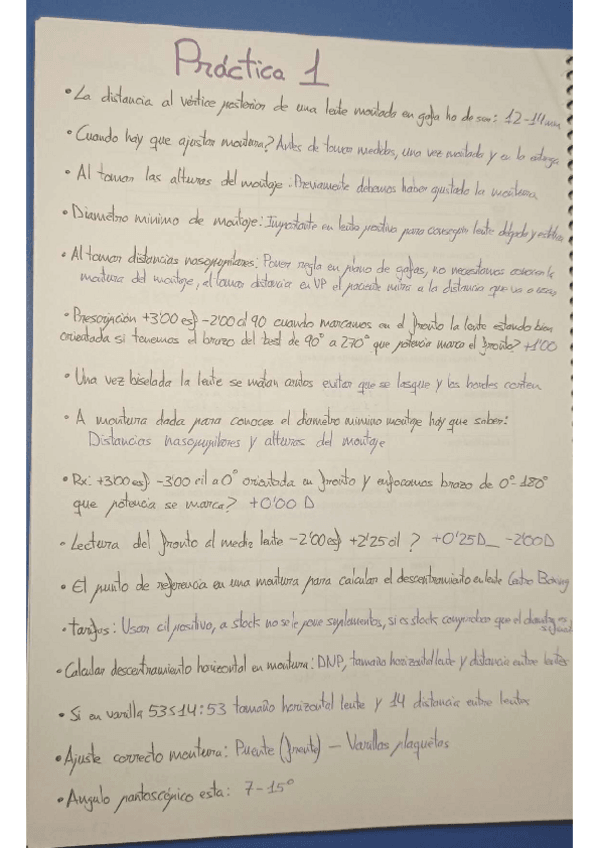 Práctica 1
• La distancia al vértice posterior de una lente montada en gafa ha de ser: 12-14mm
• Cuando hay que ajustar montura? Antes de tomar medidas, una vez montada y en la entrega
• Al tomar las alturas del montaje: Previamente debemos haber ajustado la montura
• Diámetro mínimo de montaje: Importante en lente positiva para conseguir lente delgada y estética
• Al tomar distancias nasopupilares: Poner regla en plano de gafas, no necesitamos
montura del montaje, al tomar distancia en VP el paciente mira a la distancia que va a usar
• Prescripción +3'00 esf -2'00 cil 90 cuando marcamos en el fronto la lente estando bien
orientada si tenemos el brazo del test de 90° a 270° que potencia marca el fronto? +1'00
• Una vez biselada la lente se matan cantos evitar que se lasque y los bordes corten
• A montura dada para conocer el diámetro mínimo montaje hay que saber:
Distancias nasopupilares y alturas del montaje
• Rx: +3'00 esf -3'00 cil a 0° orientada en fronto y enfocamos brazo de 0°-180°
que potencia se marca? +0'00 D
• Lectura del fronto al medir lente -2'00 esf +2'25 cil ? +0'25D_ -2'00D
• El punto de referencia en una montura para calcular el descentramiento en lente Centro Boxing
• Tarifas: Usan cil positivo, a stock no se le pone suplementos, si es stock comprobar que el
• Calcular descentramiento horizontal en montura: DNP, tamaño horizontal lente y distancia entre lentes
• Si en varilla 53□14: 53 tamaño horizontal lente y 14 distancia entre lentes
• Ajuste correcto montura: Puente (fronte) - Varillas plaquetas
• Angulo pantoscópico esta: 7-15°